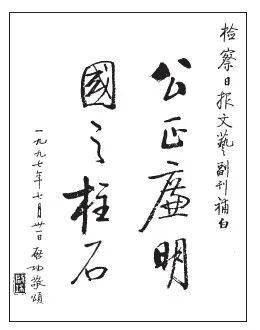 检察日报文藝副刊補白
公正廉明
國之柱石
一九九七年七月卅一日啟功敬頌